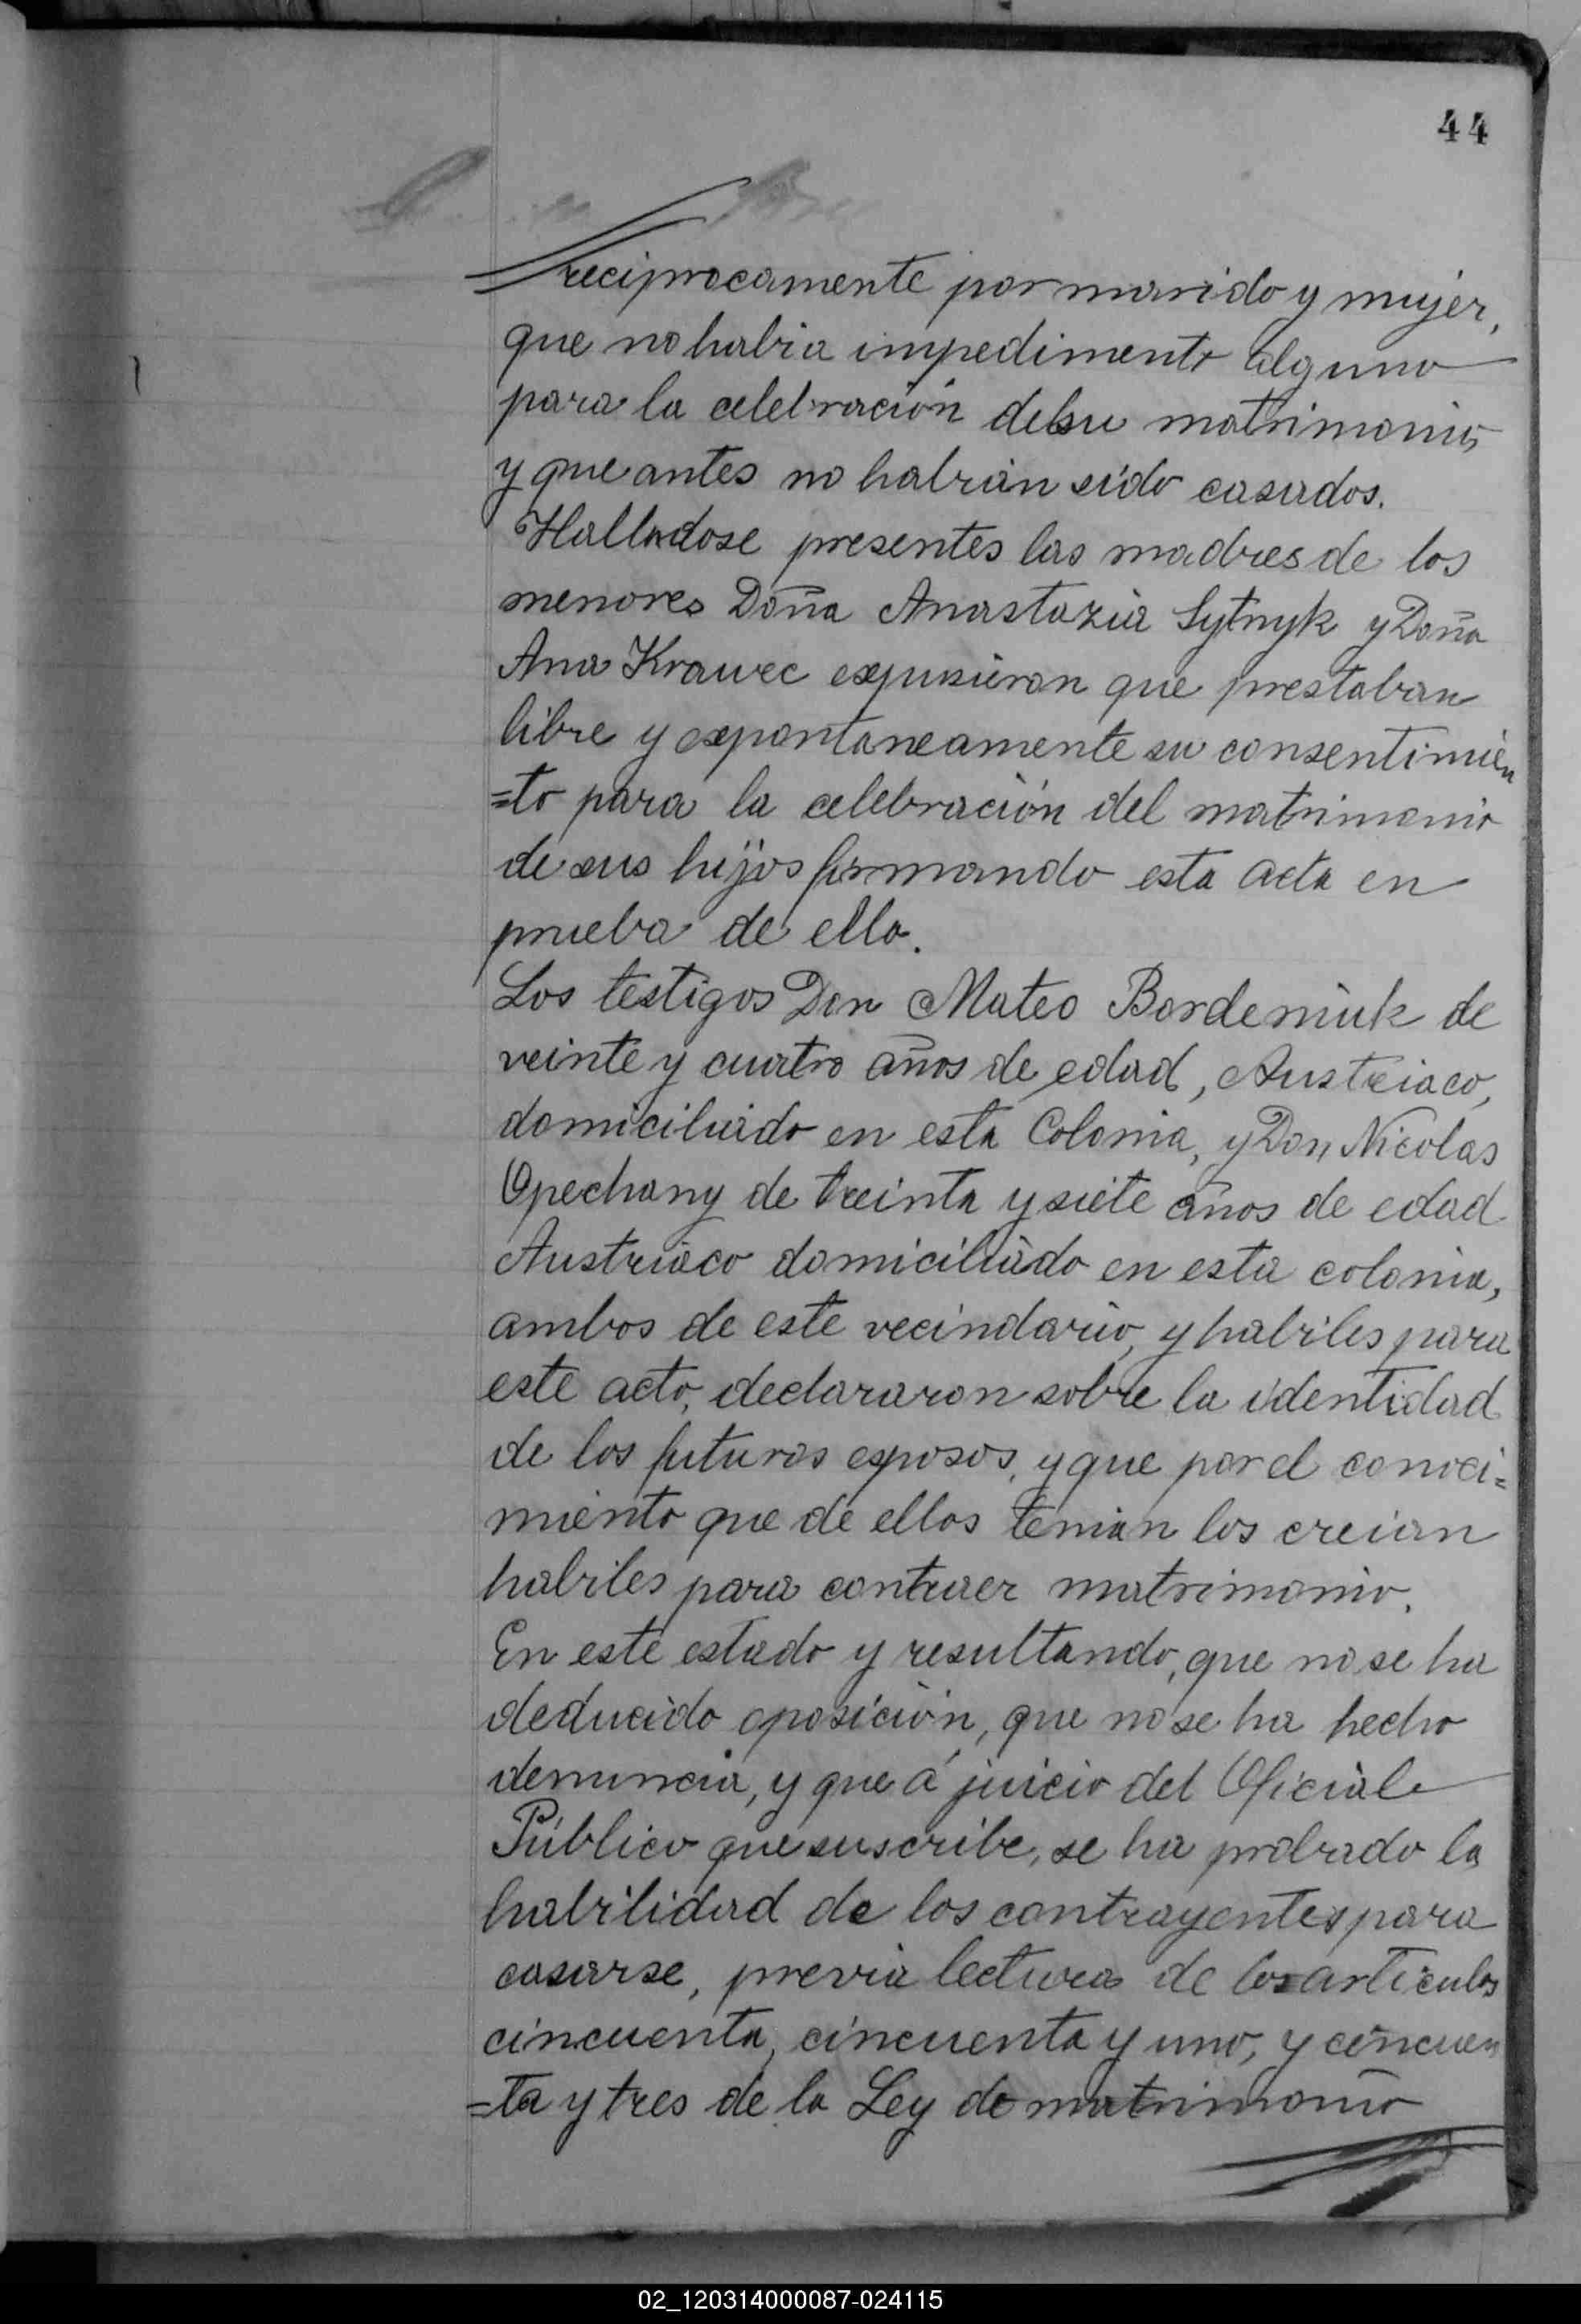 44
reciprocamente por marido y mujer,
que no habia impedimento alguno
para la celebración de su matrimonio,
y que antes no habian sido casados.
Halladose presentes las madres de los
menores Doña Anastazia Sytnyk y Doña
Ana Krawec expusieron que prestaban
libre y expontaneamente su consentimien
=to para la celebración del matrimonio
de sus hijos firmando esta acta en
prueba de ello.
Los testigos Don Mateo Bordeniuk de
veinte y cuatro años de edad, Austriaco,
domiciliado en esta Colonia, y Don Nicolás
Opechany de treinta y siete años de edad
Austriaco domiciliado en esta colonia,
ambos de este vecindario, y habiles para
este acto, declararon sobre la identidad
de los futuros esposos, y que por el conoci=
miento que de ellos tenian los creian
habiles para contraer matrimonio.
En este estado y resultando, que no se ha
deducido oposición, que no se ha hecho
denuncia, y que á juicio del Oficial
Público que suscribe, se ha probado la
habilidad de los contrayentes para
casarse, previa lectura de los articulos
cincuenta, cincuenta y uno, y cincuen
=ta y tres de la Ley de matrimonio
02_120314000087-024115